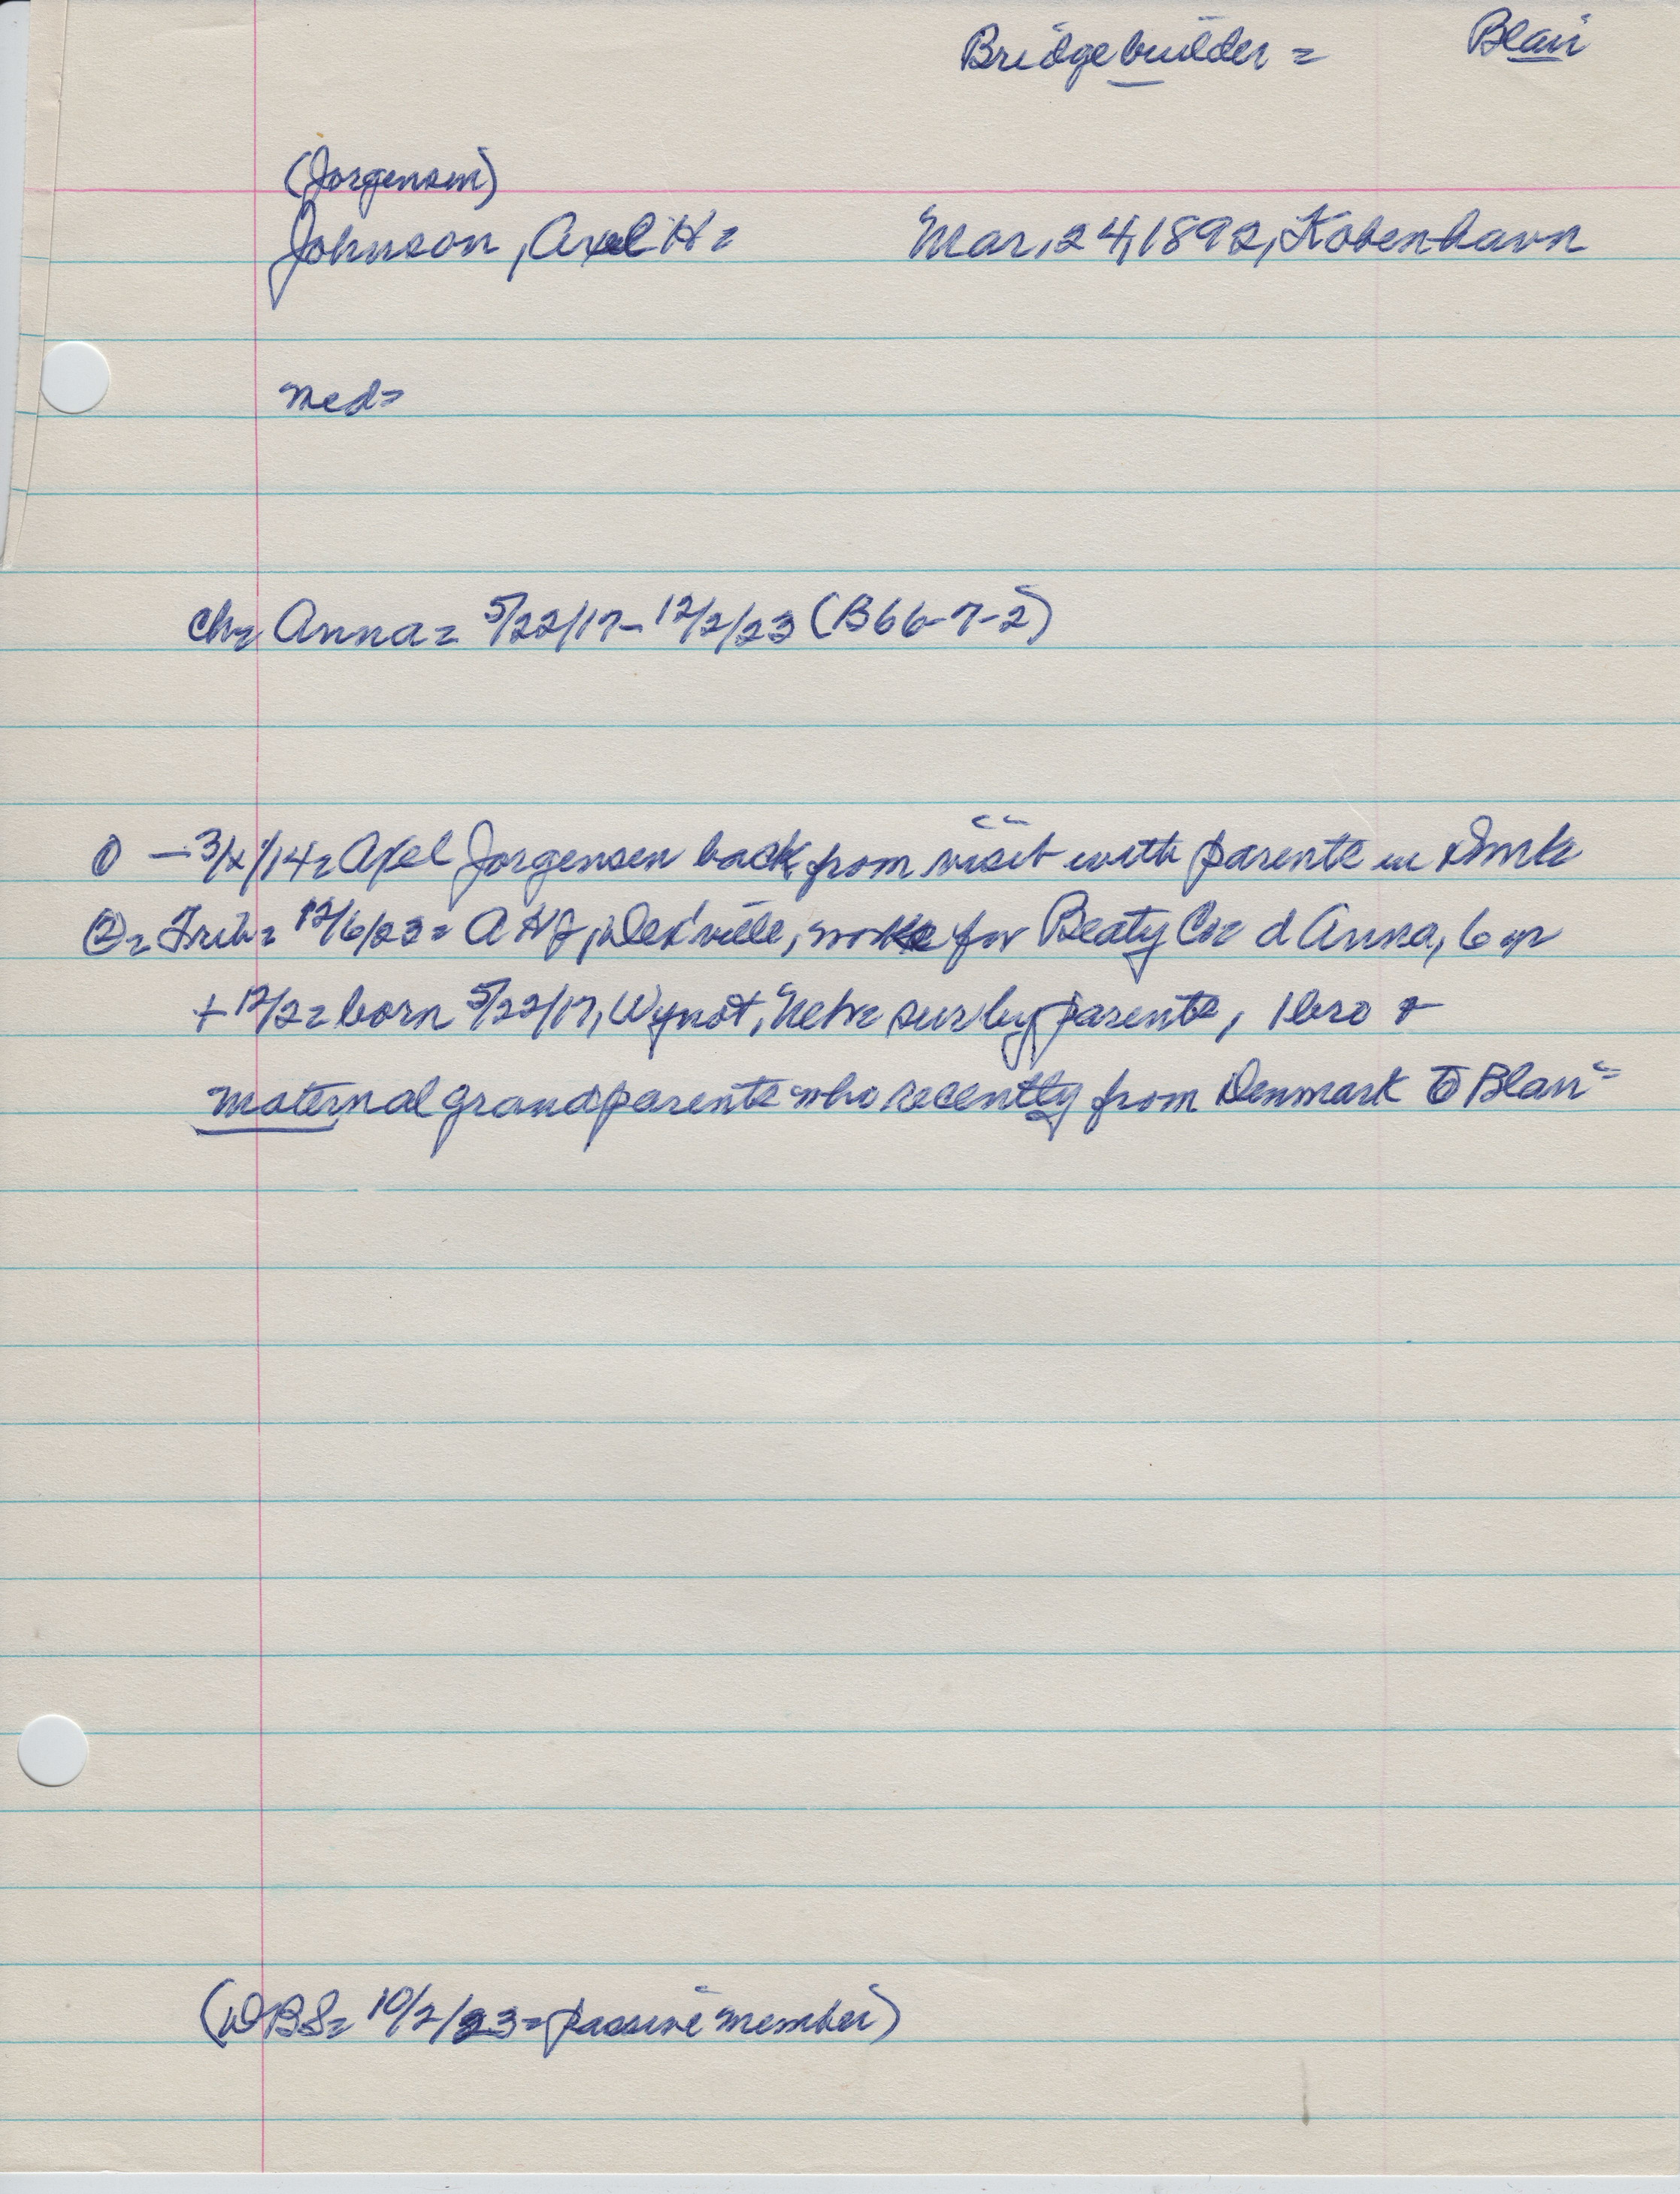 Bridgebuilder = Blair
(Jorgensen)
Johnson, Axel H= Mar. 24, 1892, Kobenhavn
med=
ch= Anna= 5/22/17-12/2/23 (B66-7-2)
① - 3/x/14= Axel Jorgensen back from visit with parents in Dmk
②= Trib= 12/6/23= AHJ, works for Beaty Co= d Anna, 6 yr
+ 12/2= born 5/22/17, Wynot, Neb= sur by parents, 1 bro +
maternal grandparents who recently from Denmark to Blair=
(DBS= 10/2/23= passive member)